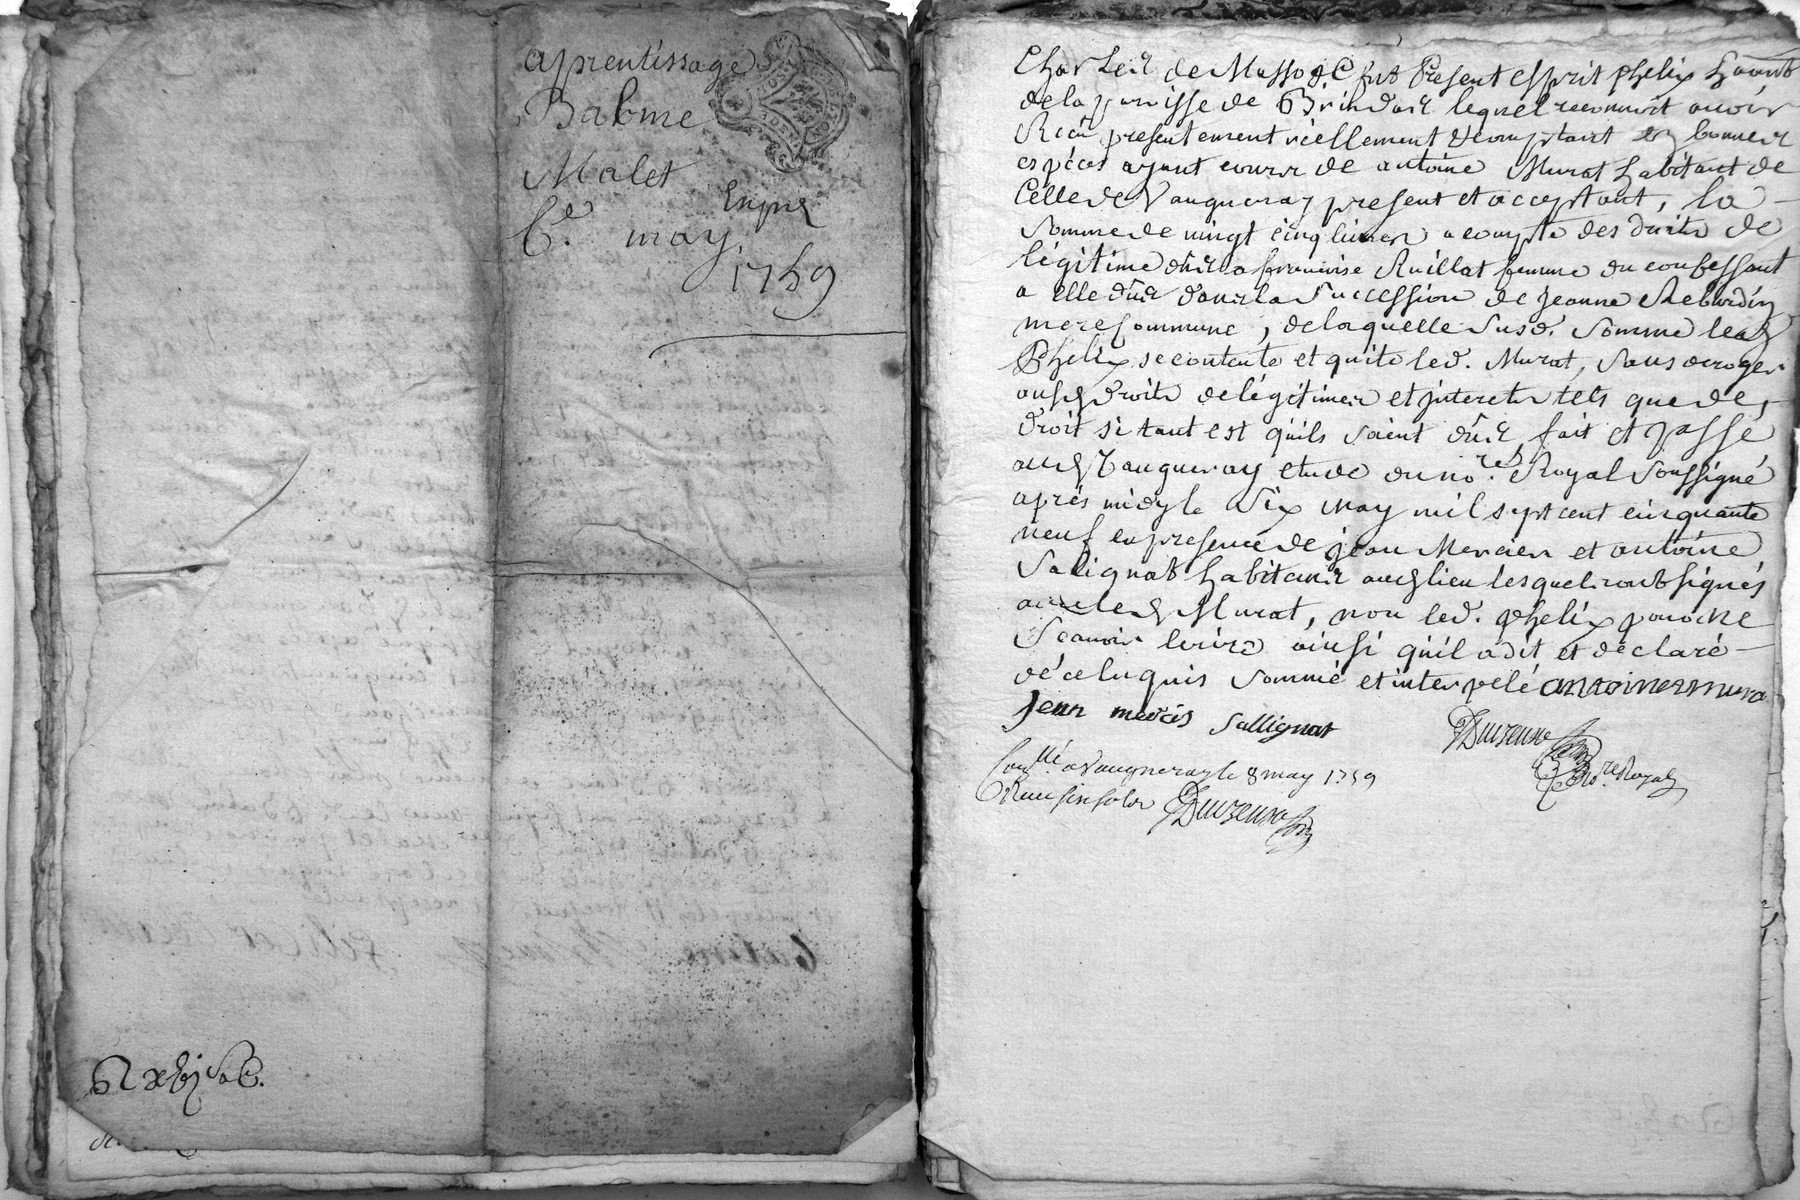 aprentissage
Balme
Malet
may
1759
de Masso fut present esprit phelix habitant
de la paroisse de Brindas lequel reconnoit avoir
Recu presentement réellement et comptant en bonnes
espéces ayant cours de antoine Murat habitant de
Celle de Vaugneray present et acceptant, la
Somme de vingt cinq livres a compte des droits de
légitime dûs a francoise Ruillat femme du confessant
a elle dûs dans la Succession de jeanne Rebordin
mere Commune, de laquelle susd. Somme led
Phelix se contente et quite led. Murat, Sans deroger
auxd droits de légitimes et jnterets tels que de
droit si tant est quils soient dûs, fait et passé
aud Vaugneray etude du no.re Royal Soussigné
aprés midy le Six May mil sept cent cinquante
neuf en presence de jean Mercier et antoine
Salignat habitans aud lieu lesquels ont signés
avec led Murat, non led. phelix pour ne
Scavoir ecrire ainsi quil a dit et déclaré
de ce enquis Sommé et interpelé antoine mura
jean mercis Sallignat
no.re Royal
a Vaugneray le 8 may 1759
Recu six sols